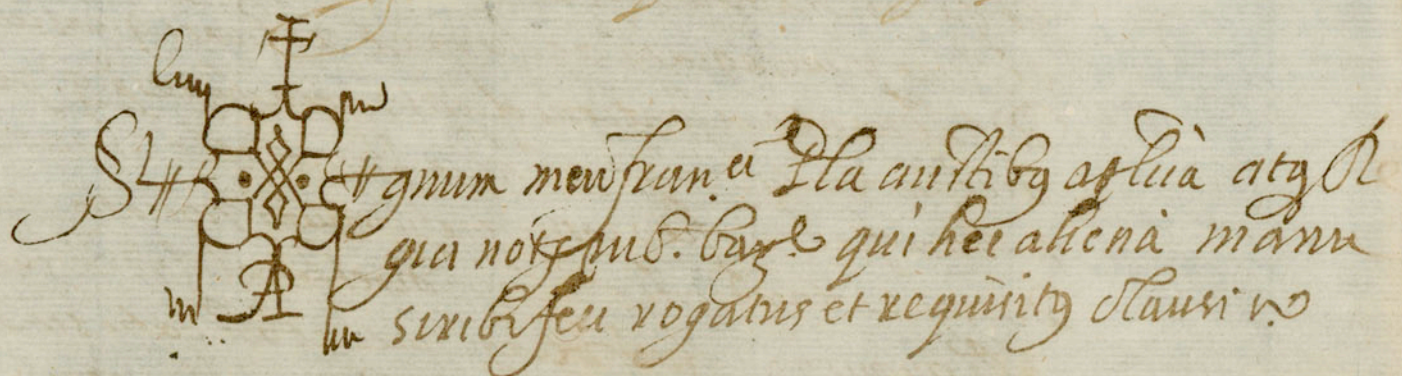 Signum meu franci Pla auctibus aplicà atq R
gia notŷ pub. barc. qui hec aliena manu
scribi feci rogatus et requisitus clausi